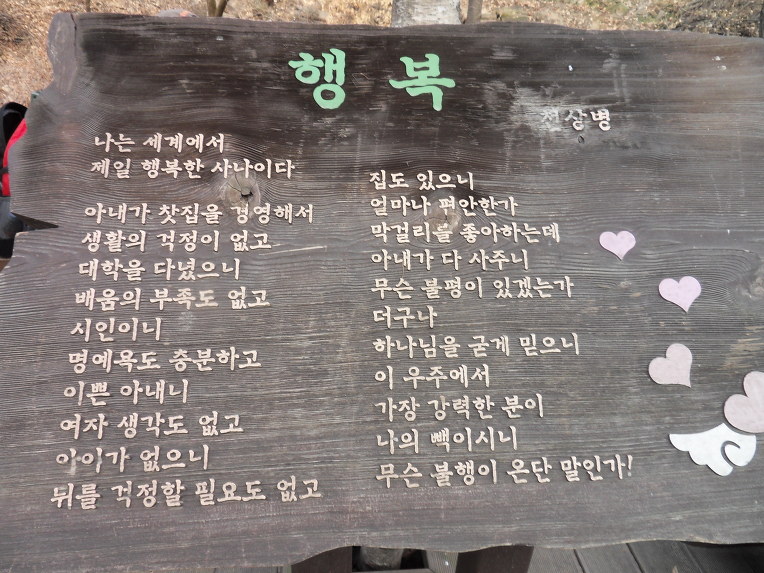 행 복
천상병
나는 세계에서
제일 행복한 사나이다
아내가 찻집을 경영해서
생활의 걱정이 없고
대학을 다녔으니
배움의 부족도 없고
시인이니
명예욕도 충분하고
이쁜 아내니
여자 생각도 없고
아이가 없으니
뒤를 걱정할 필요도 없고
집도 있으니
얼마나 편안한가
막걸리를 좋아하는데
아내가 다 사주니
무슨 불평이 있겠는가
더구나
하나님을 굳게 믿으니
이 우주에서
가장 강력한 분이
나의 빽이시니
무슨 불행이 온단 말인가!